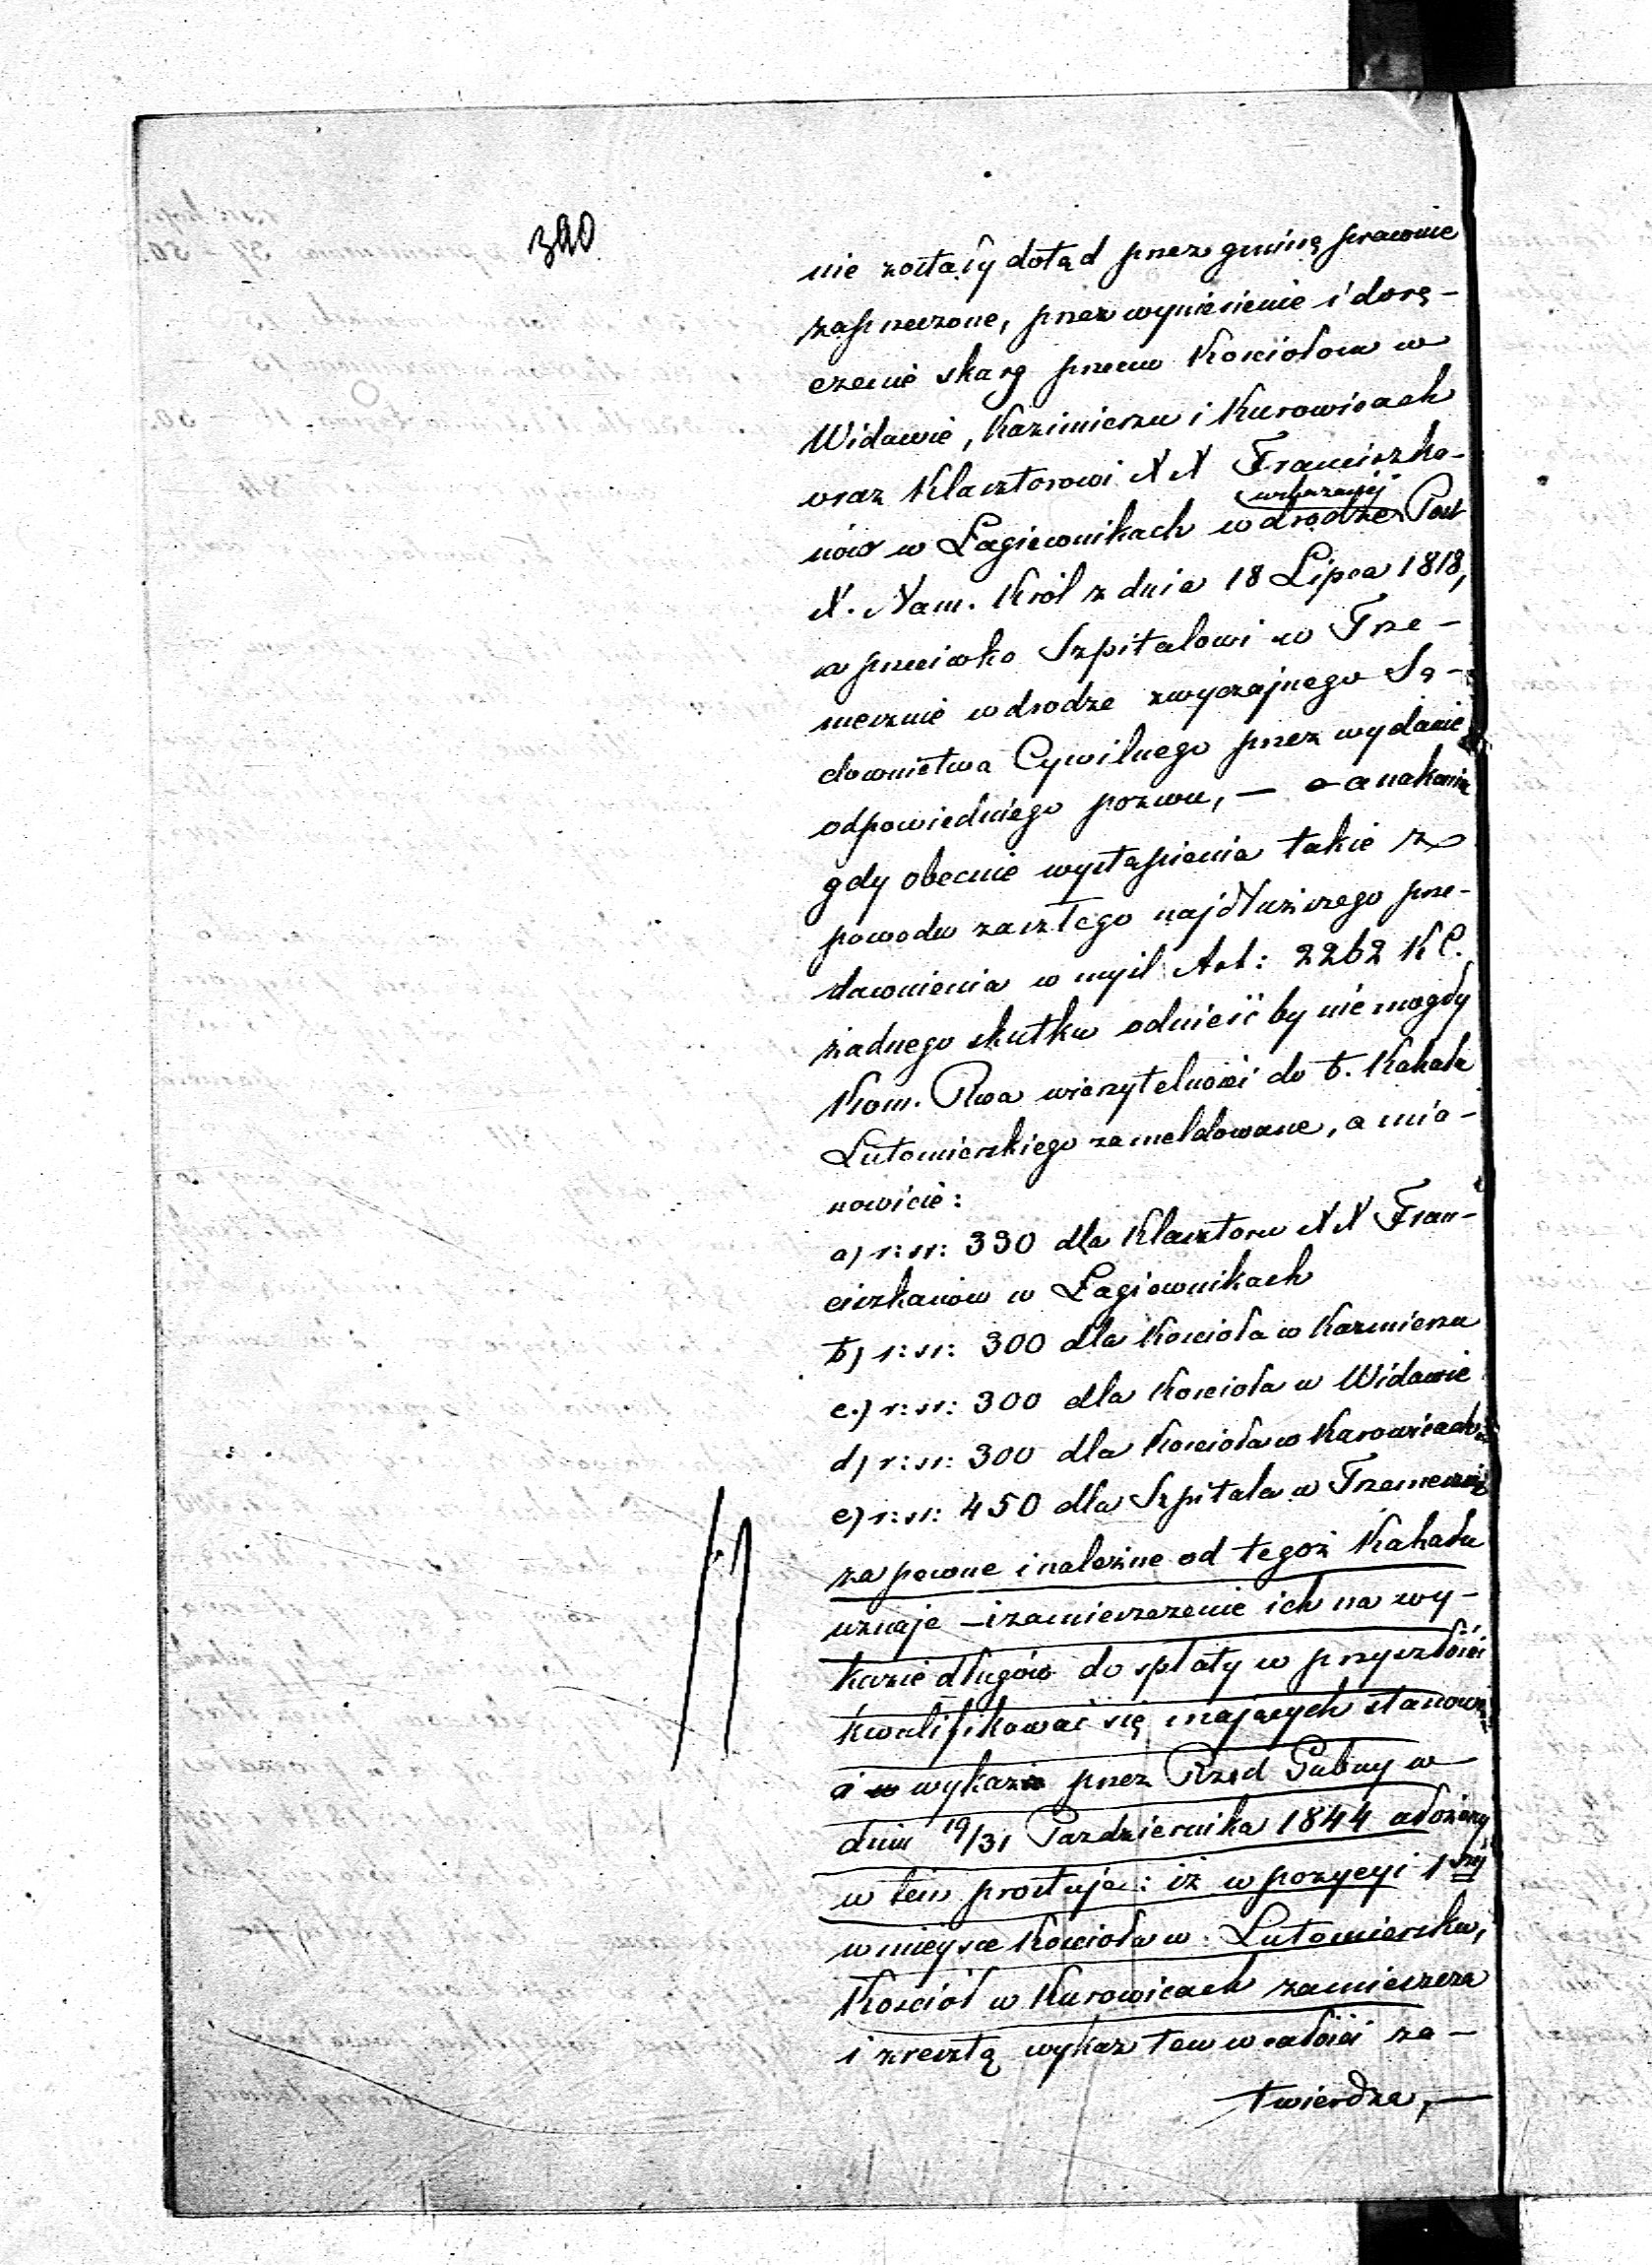 390
nie zostały dotąd przez gminę prawnie
zaprzeczone, przez wyniesienie i dorę-
czenie skarg przeciw Kościołom w
Widawie, Kazimierzu i Kurowicach
oraz Klasztorowi XX Franciszka-
nów w Łagiewnikach w drodze wskazanej Post
X. Nam. Król z dnia 18 Lipca 1818,
a przeciwko Szpitalowi w Trze-
mesznie w drodze zwyczajnego Są-
downictwa Cywilnego przez wydanie
odpowiedniego pozwu, — a nakoniec
gdy obecnie wystąpienia takie z
powodu zaszłego najdłuższego prze-
dawnienia w myśl Art: 2262 K C.
żadnego skutku odnieść by nie mogły
Kom. Rwa wierzytelności do b. Kahału
Lutomierskiego zameldowane, a mia-
nowicie:
a) r: sr: 330 dla Klasztoru XX Fran-
ciszkanów w Łagiewnikach
b) r: sr: 300 dla Kościoła w Kazmierzu
c.) r: sr: 300 dla Kościoła w Widawie
d) r: sr: 300 dla Kościoła w Kurowicach
e) r: sr: 450 dla Szpitala w Trzemesznie
za pewne i należne od tegoż Kahału
uznaje — i zamieszczenie ich na wy-
kazie długów do spłaty w przyszłości
kwalifikować się mających stanowi
a wykaz przez Rząd Gubny w
dniu 19/31 Pazdziernika 1844 ułożony
w tem prostuje: iż w pozycyi 1szej
w miejsce Kościoła w Lutomiersku,
Kościół w Kurowicach zamieszcza
i zresztą wykaz ten w całości za-
twierdza, —